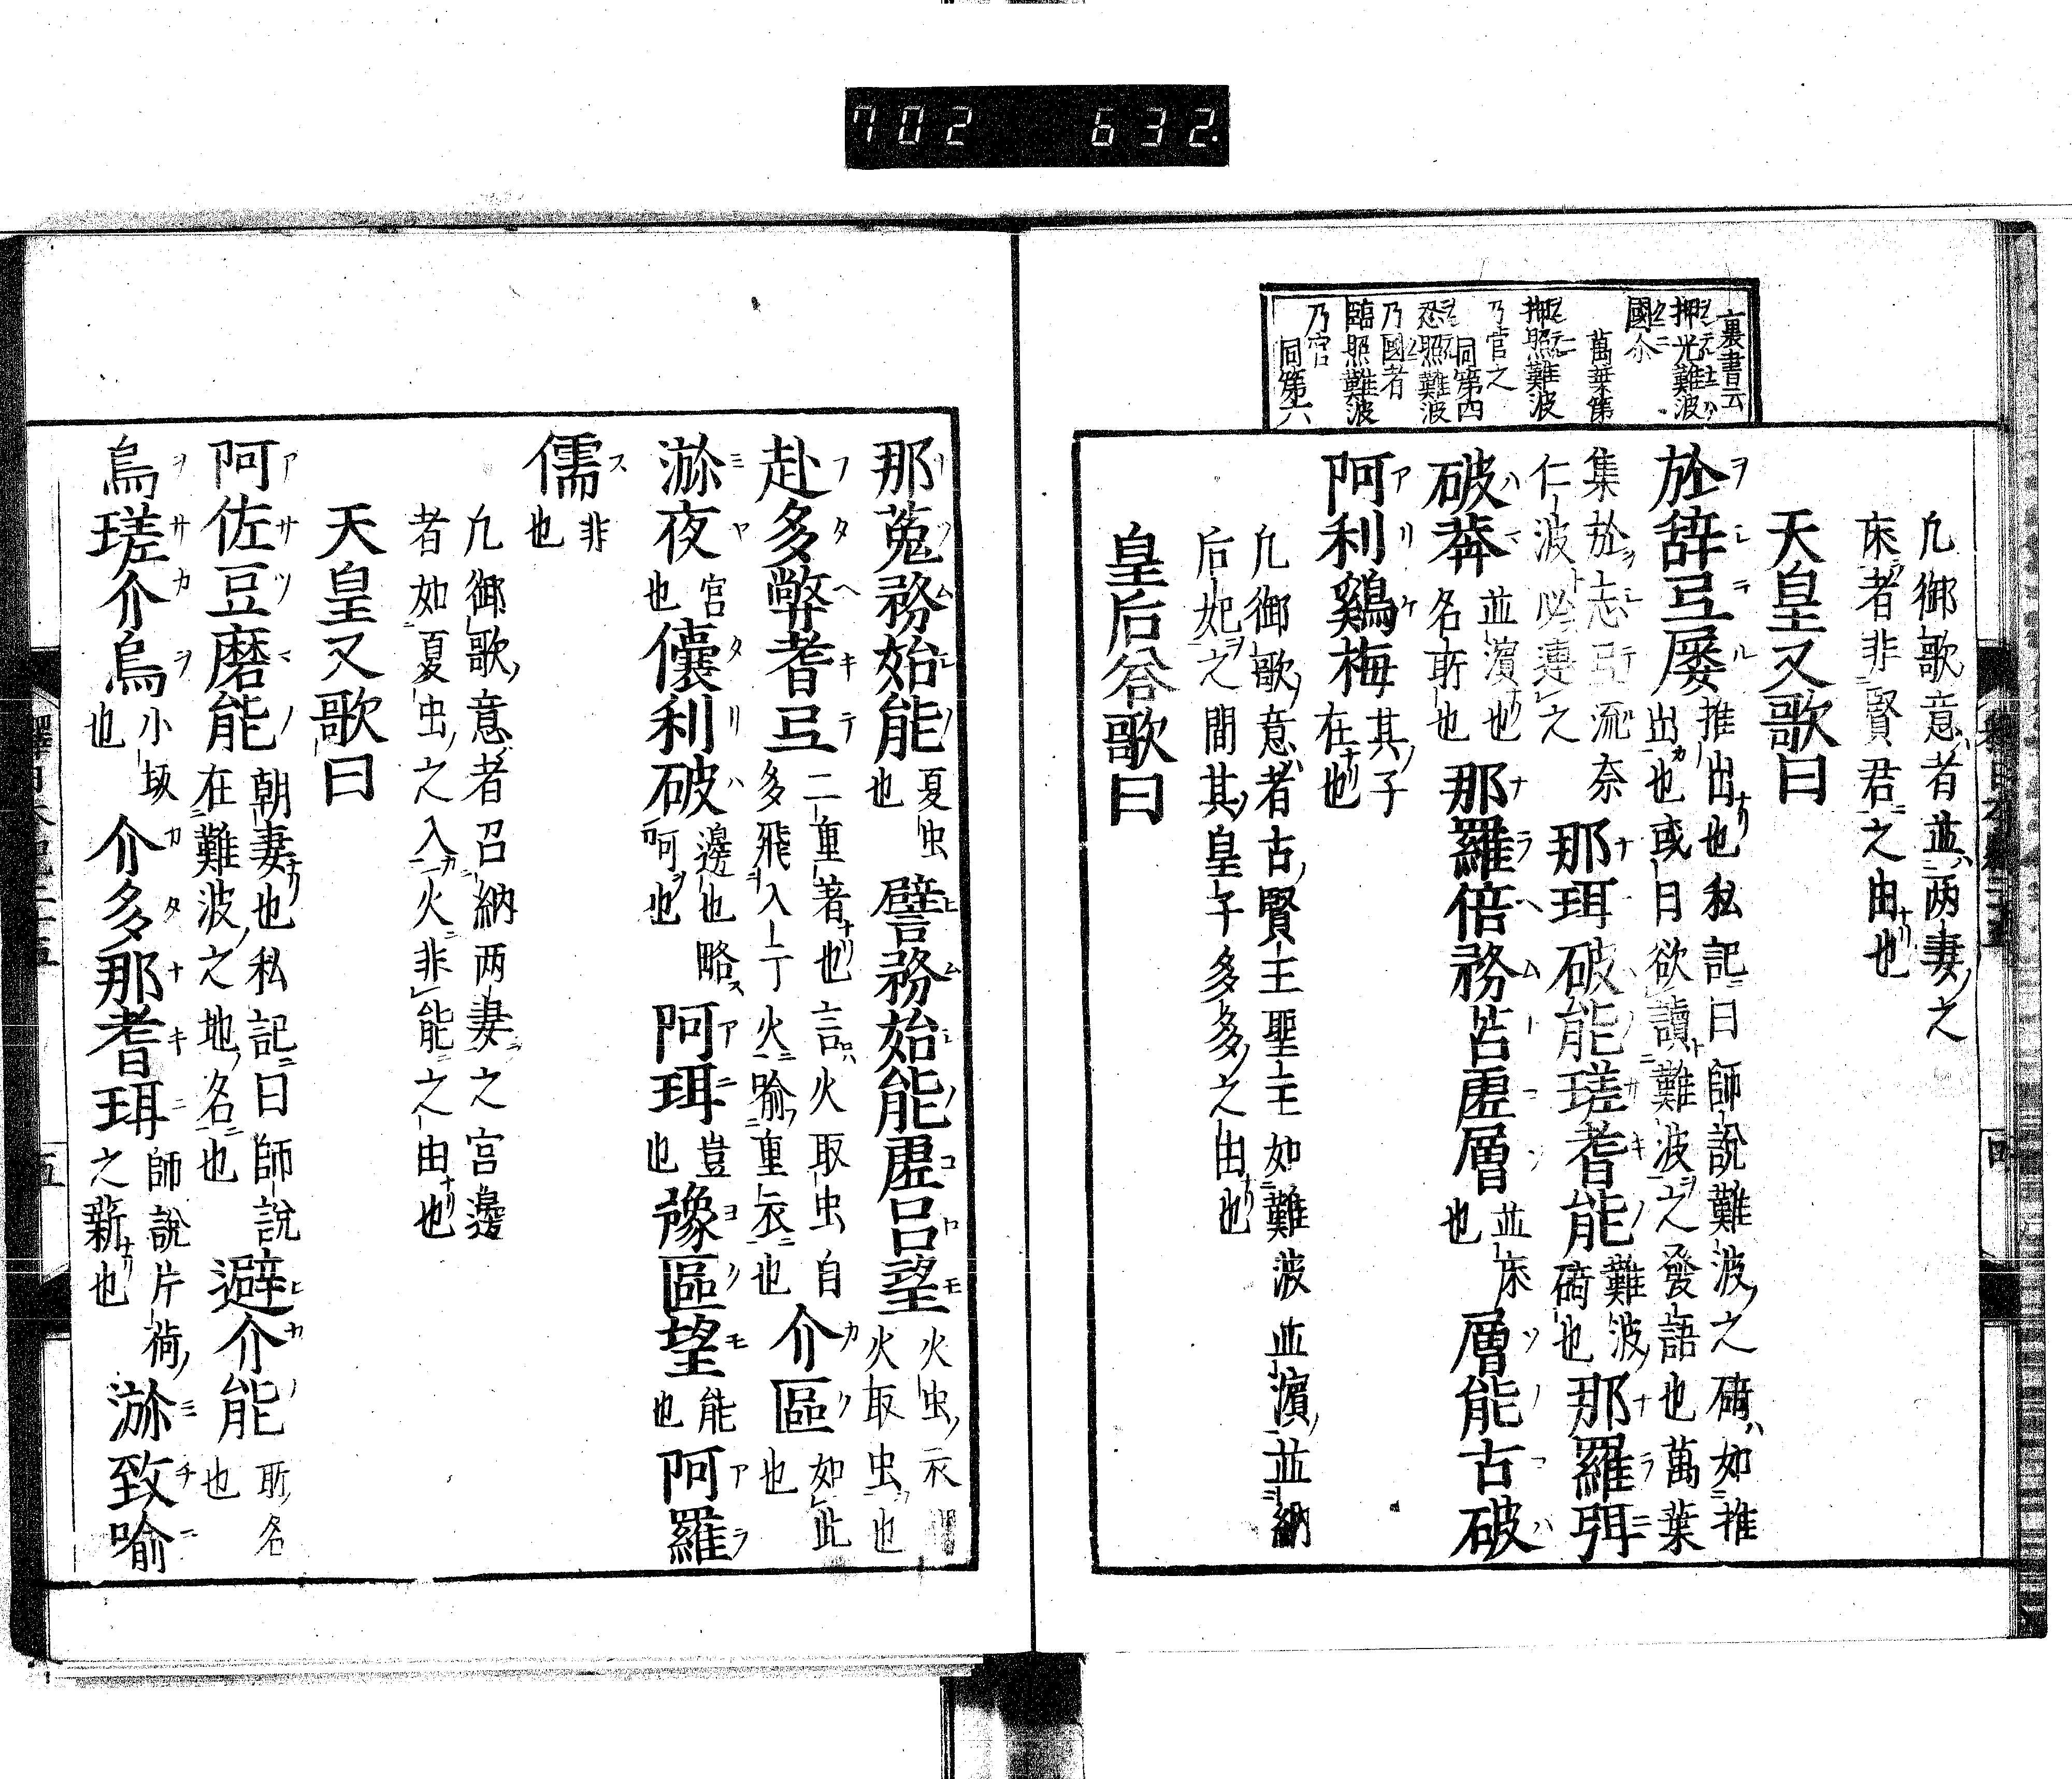 702 632.
裏書云
押光難波
國尒
萬葉第
押照難波
乃官之
同第四
忍照難波
乃國者
臨照難波
乃宮
同第六
凡御歌意者並两妻之
床者非賢君之由也
天皇又歌曰
於辞弖屢 推出也私記曰師說難波之碕如推
出也或曰欲讀難波之發語也萬葉
集於志弖流奈
仁波必連之 那珥破能瑳耆能 難波
碕也 那羅弭
破莽 並濱也
名所也 那羅倍務苔虚層 並床
也 層能古破
阿利鷄梅 其子
在也
凡御歌意者古賢王聖主如難波並濱並納
后妃之間其皇子多多之由也
皇后答歌曰
那菟務始能 夏虫
也 譬務始能虚呂望 火虫衣
火取虫也
赴多弊耆弖 二重著也言火取虫自
多飛入丁火喻重衣也 介區 如此
也
瀰夜 宮
也 儾利破 邊也略
呵也 阿珥 豈
也 豫區望 能
也 阿羅
儒 非
也
凡御歌意者召納两妻之宮邊
者如夏虫之入火非能之由也
天皇又歌曰
阿佐豆磨能 朝妻也私記曰師說
在難波之地名也 避介能 所名
也
烏瑳介烏 小坂
也 介多那耆珥 師說片荷
之薪也 瀰致喻